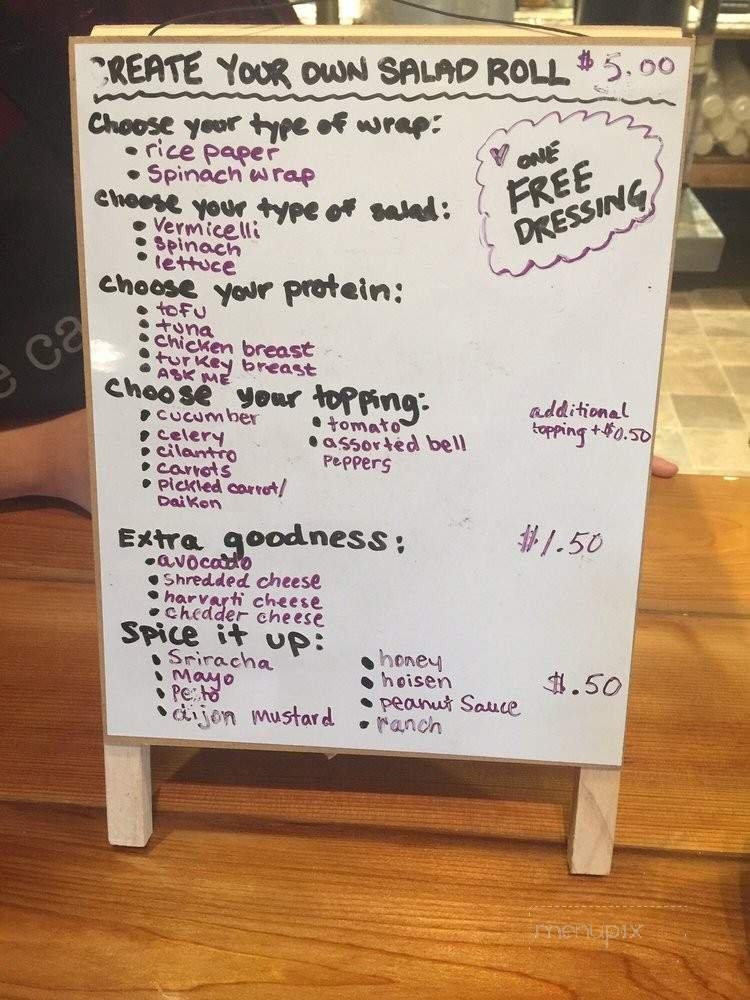 CREATE YOUR OWN SALAD ROLL $5.00
Choose your type of wrap:
• rice paper
• Spinach wrap
♥ ONE
FREE
DRESSING
Choose your type of salad:
• Vermicelli
• spinach
• lettuce
Choose your protein:
• tofu
• tuna
• chicken breast
• turkey breast
• ASK ME
Choose your topping:
• cucumber
• celery
• cilantro
• carrots
• pickled carrot/
Daikon
• tomato
• assorted bell
peppers
additional
topping +$0.50
Extra goodness: $1.50
• avocado
• shredded cheese
• harvarti cheese
• chedder cheese
Spice it up:
• Sriracha
• Mayo
• Pesto
• dijon mustard
• honey
• hoisen
• peanut Sauce
• ranch
$.50
e ca
menupix